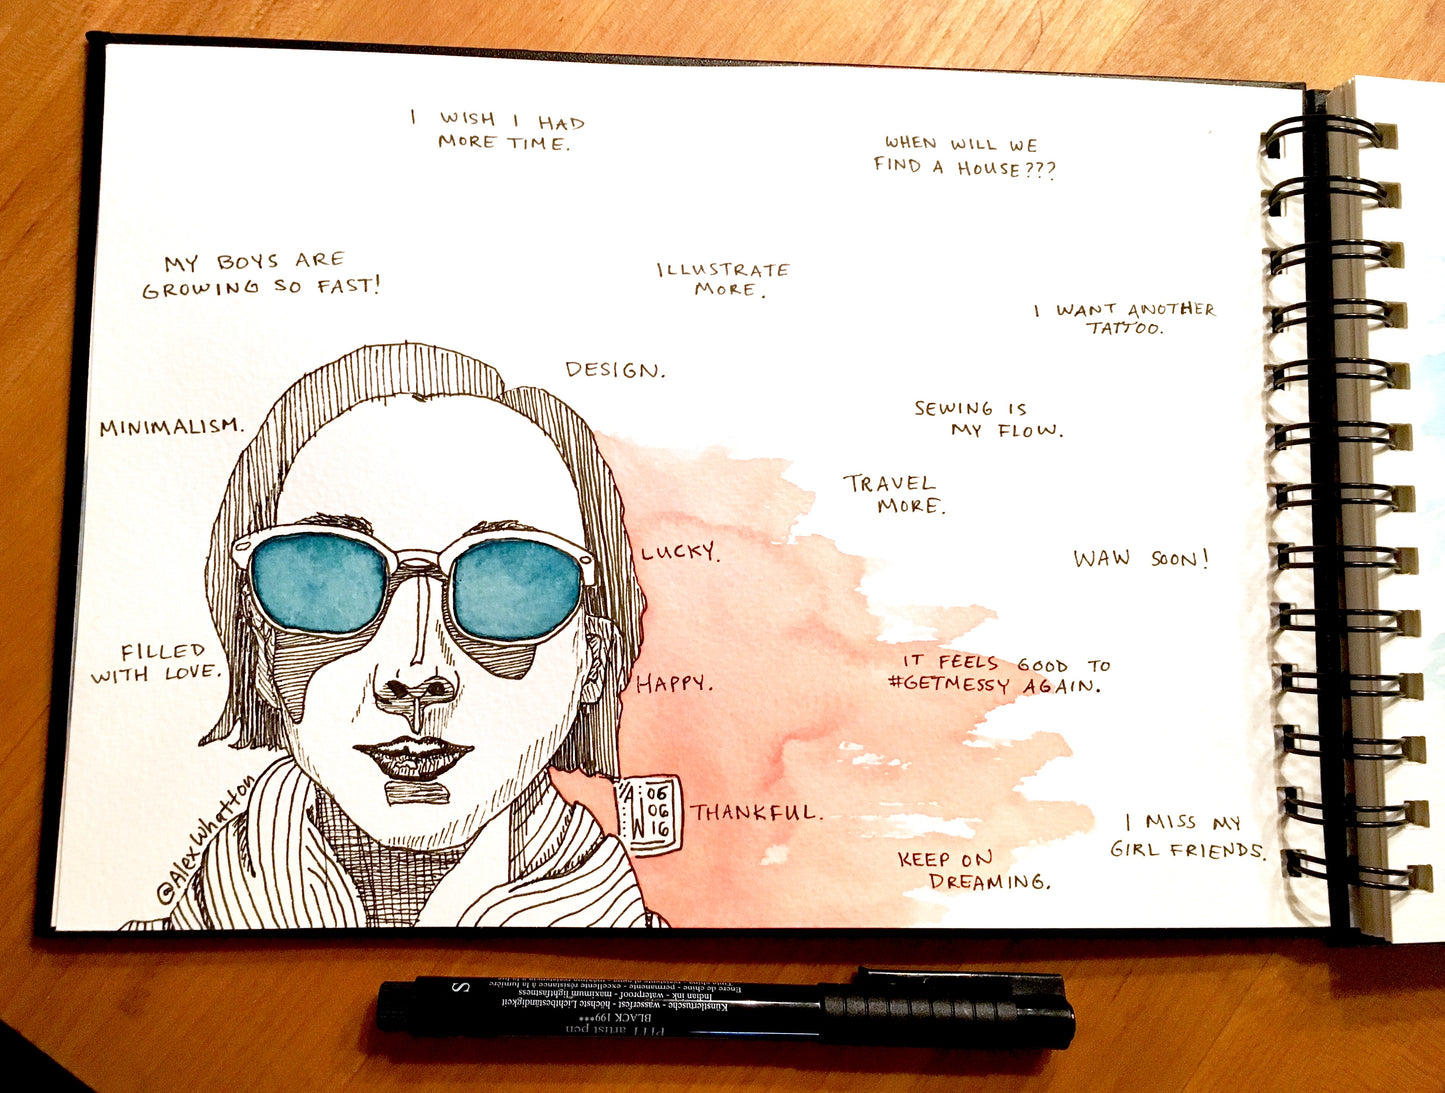 I WISH I HAD
MORE TIME.
WHEN WILL WE
FIND A HOUSE???
MY BOYS ARE
GROWING SO FAST!
ILLUSTRATE
MORE.
I WANT ANOTHER
TATTOO.
DESIGN.
MINIMALISM.
SEWING IS
MY FLOW.
TRAVEL
MORE.
LUCKY.
WAW SOON!
FILLED
WITH LOVE.
IT FEELS GOOD TO
#GETMESSY AGAIN.
HAPPY.
@AlexWhatton
A
W
06
06
16
THANKFUL.
I MISS MY
GIRL FRIENDS.
KEEP ON
DREAMING.
S
PITT artist pen
BLACK 199***
Künstlertusche - wasserfest - höchste Lichtbeständigkeit
Indian ink - waterproof - maximum lightfastness
Encre de chine - permanente - excellente résistance à la lumière